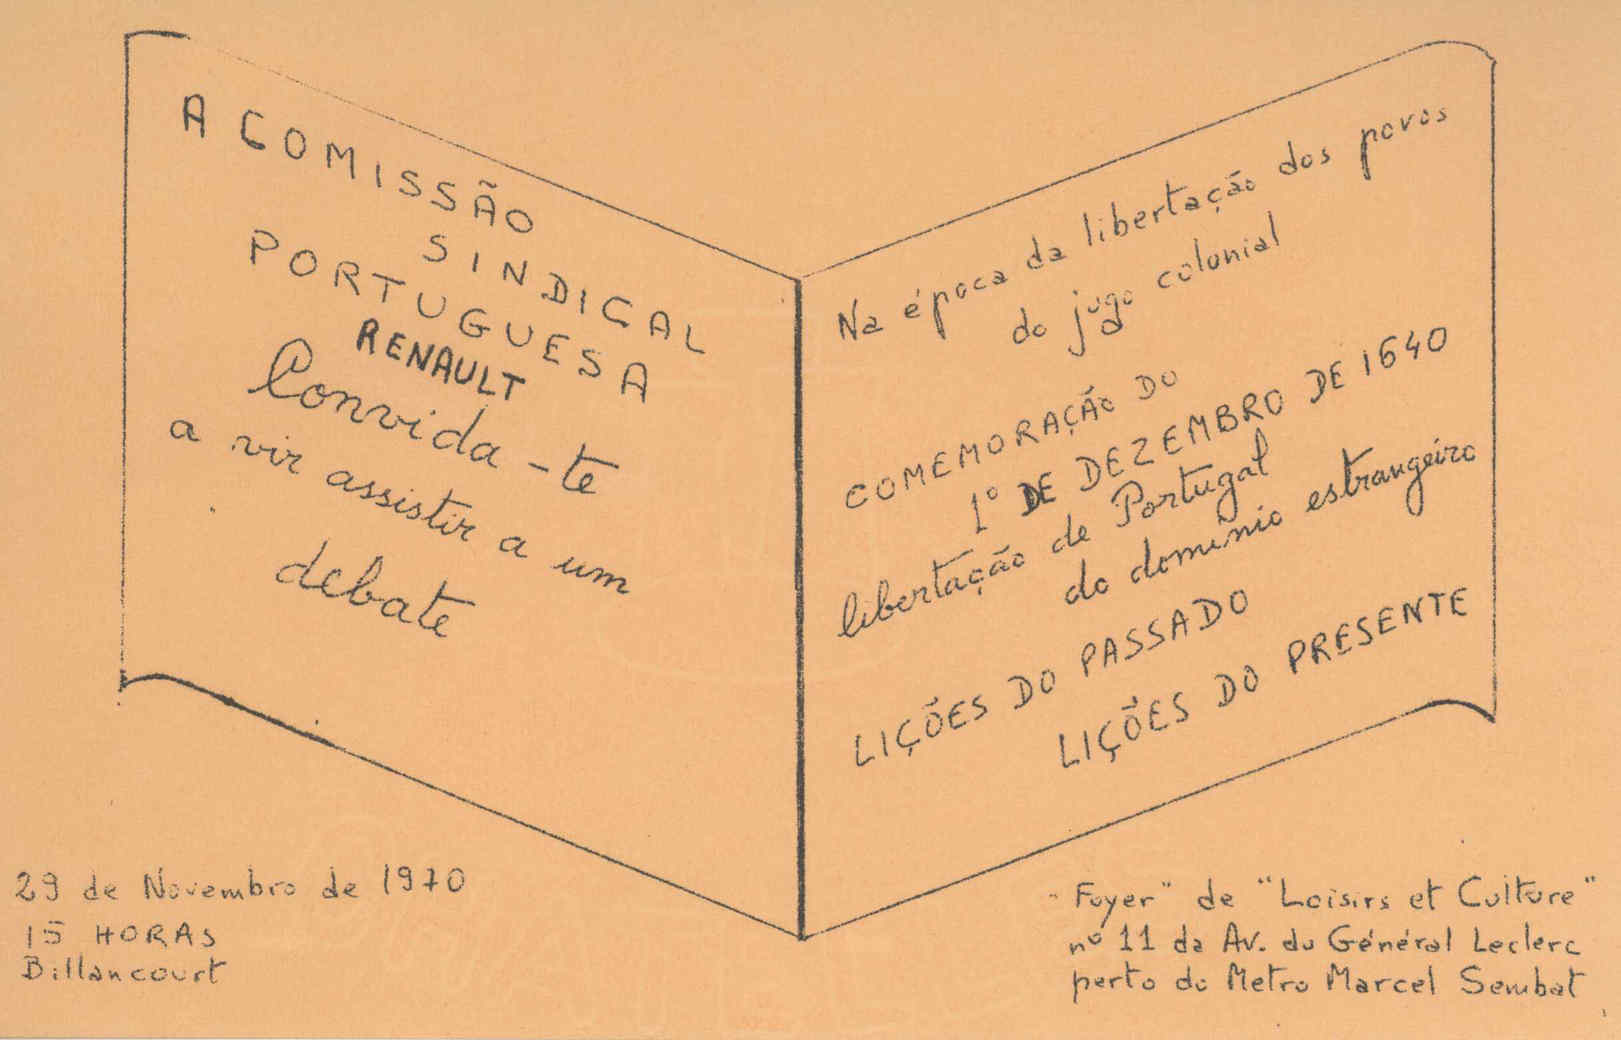 A COMISSÃO
SINDICAL
PORTUGUESA
RENAULT
Convida-te
a vir assistir a um
debate
Na época da libertação dos povos
do jugo colonial
COMEMORAÇÃO DO
1º DE DEZEMBRO DE 1640
libertação de Portugal
do dominio estrangeiro
LIÇÕES DO PASSADO
LIÇÕES DO PRESENTE
29 de Novembro de 1970
15 HORAS
Billancourt
"Foyer" de "Loisirs et Culture"
nº 11 da Av. du Général Leclerc
perto do Metro Marcel Sembat